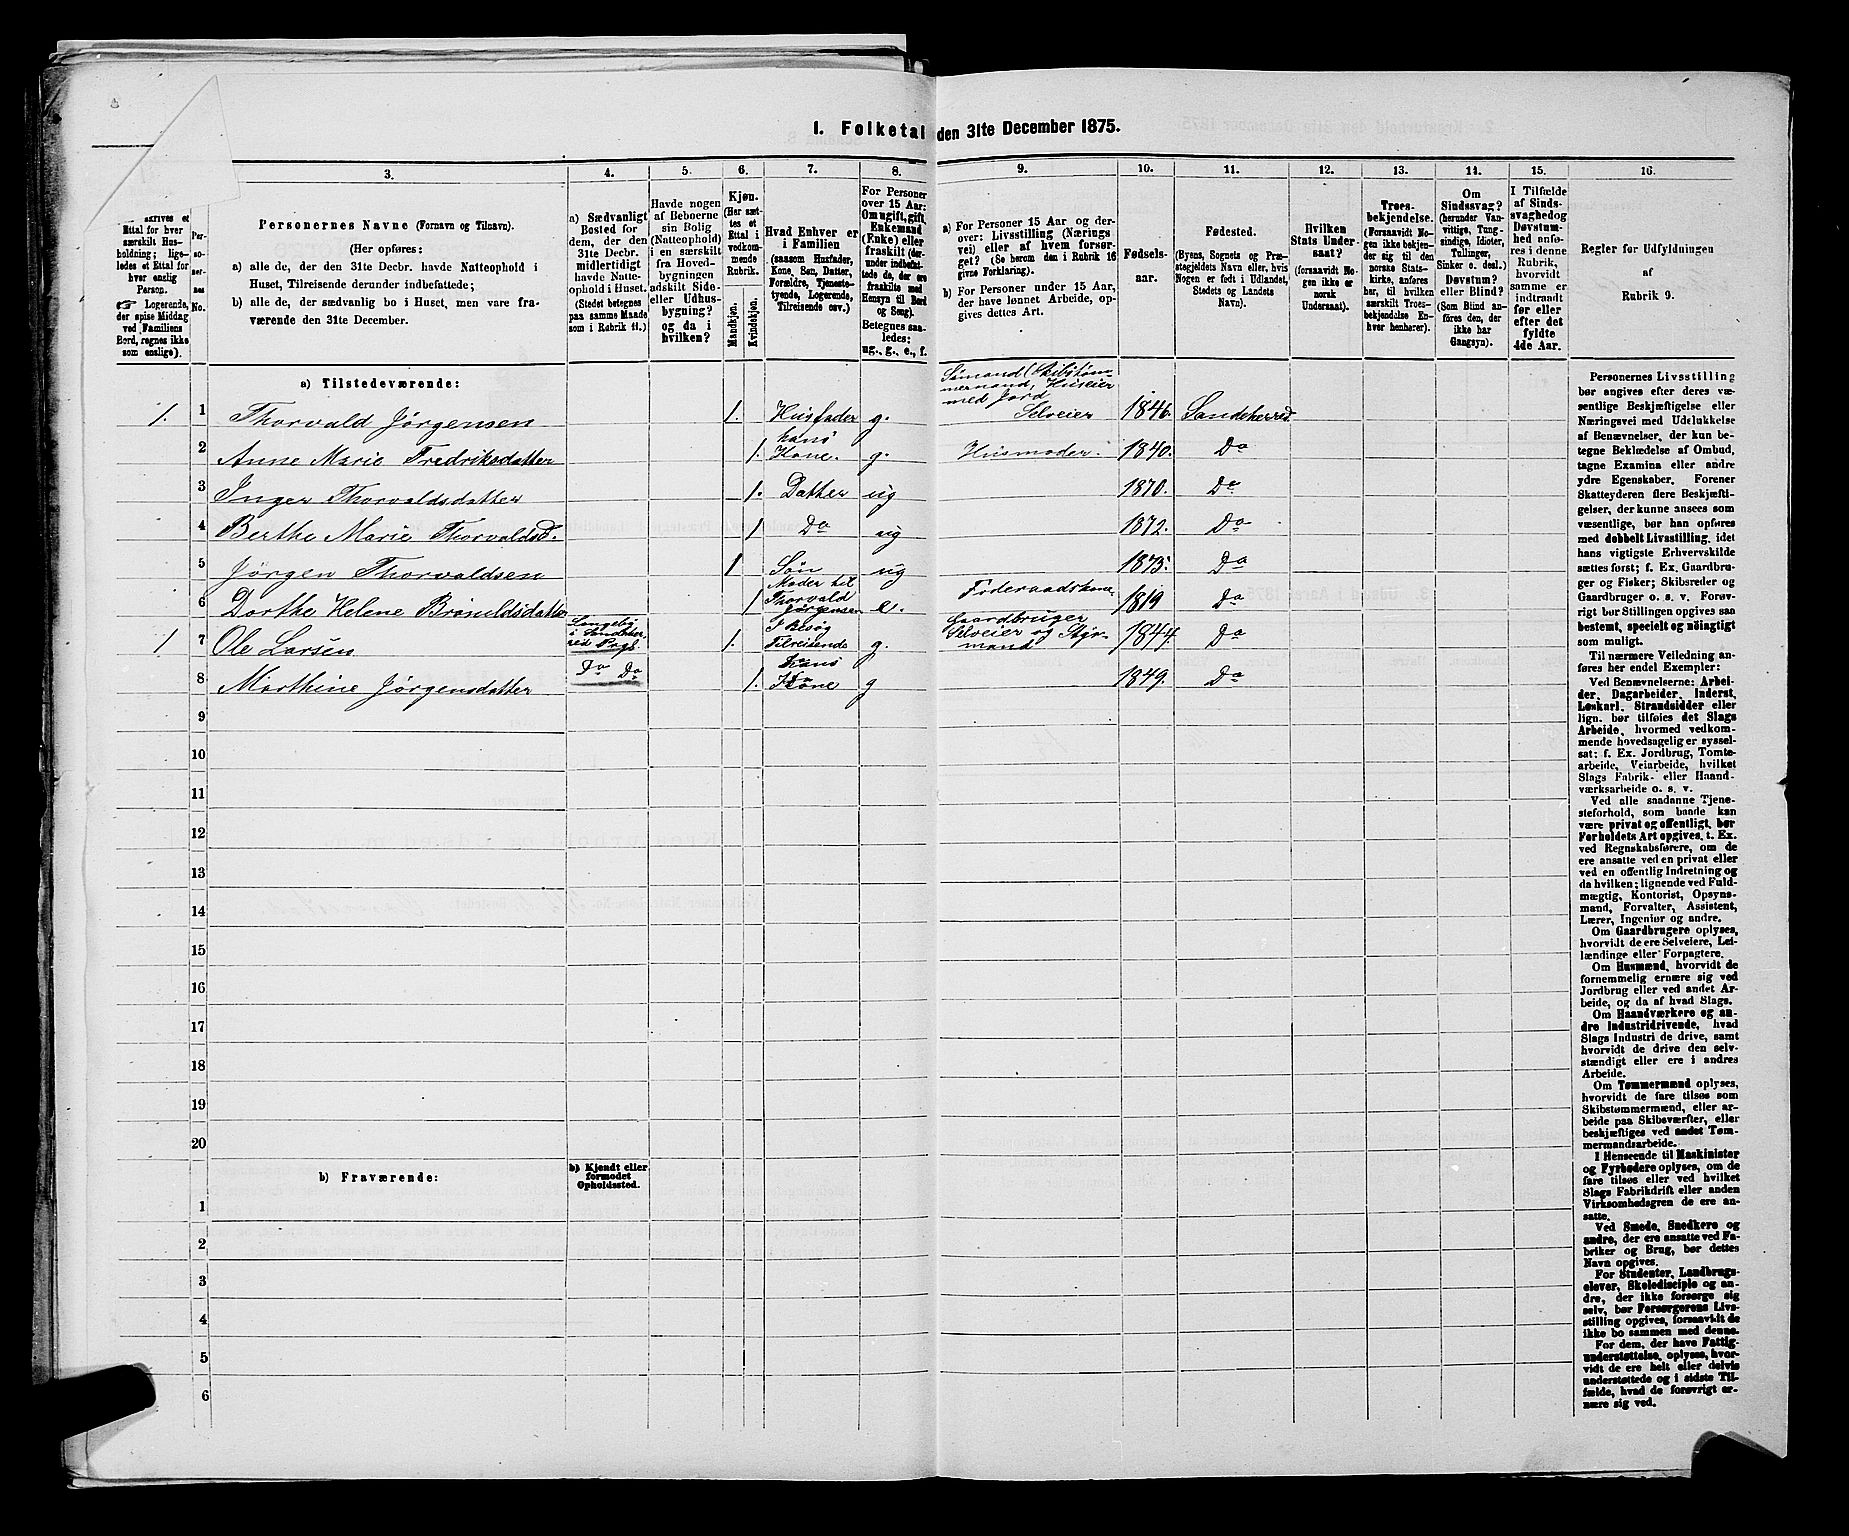 I. Folketal den 31te December 1875.
3.
4.
5.
6.
7.
8.
9.
10.
11.
12.
13.
14.
15.
16.
skrives et
Ettal for hver
særskilt Hus-
holdning; lige-
ledes et Ettal for
hver enslig
Person.
☞ Logerende,
der spise Middag
ved Familiens
Bord, regnes ikke
som enslige).
Per-
so-
ner-
nes
No.
Personernes Navne (Fornavn og Tilnavn).
(Her opføres:
a) alle de, der den 31te Decbr. havde Natteophold i
Huset, Tilreisende derunder indbefattede;
b) alle de, der sædvanlig bo i Huset, men vare fra-
værende den 31te December.
a) Sædvanligt
Bosted for
dem, der den
31te Decbr.
midlertidigt
havde Natte-
ophold i Huset.
(Stedet betegnes
paa samme Maade
som i Rubrik 11.)
Havde nogen
af Beboerne
sin Bolig
(Natteophold)
i en særskilt
fra Hoved-
bygningen
adskilt Side-
eller Udhus-
bygning?
og da i
hvilken?
Kjøn.
(Her sæt-
tes et
Ettal i
vedkom-
mende
Rubrik.
Mandkjøn.
Kvindekjøn.
Hvad Enhver er
i Familien
(saasom Husfader,
Kone, Søn, Datter,
Forældre, Tjeneste-
tyende, Logerende,
Tilreisende osv.)
For Personer
over 15 Aar:
Om ugift, gift,
Enkemand
(Enke) eller
fraskilt (der-
under indbefat-
tede de, der ere
fraskilte med
Hensyn til Bord
og Seng).
Betegnes saa-
ledes:
ug., g., e., f.
a) For Personer 15 Aar og der-
over: Livsstilling (Nærings
vei) eller af hvem forsør-
get? (Se herom den i Rubrik 16
givne Forklaring).
b) For Personer under 15 Aar,
der have lønnet Arbeide, op-
gives dettes Art.
Fødsels-
aar.
Fødested.
(Byens, Sognets og Præ-
stegjeldets Navn eller, hvis
Nogen er født i Udlandet,
Stedets og Landets
Navn).
Hvilken
Stats Under-
saat?
(forsaavidt No-
gen ikke er
norsk
Undersaat).
Troes-
bekjendelse.
(Forsaavidt No-
gen ikke bekjen-
der sig til den
norske Stats-
kirke, anføres
her, til hvilken
særskilt Troes-
bekjendelse En-
hver henhører).
Om
Sindssvag?
(herunder Van-
vittige, Tung-
sindige, Idioter,
Tullinger,
Sinker o. desl.)
Døvstum?
eller Blind?
(Som Blind an-
føres den, der
ikke har
Gangsyn).
I Tilfælde
af Sinds-
svaghed og
Døvstum-
hed anfø-
res i denne
Rubrik,
hvorvidt
samme er
indtraadt
før eller
efter det
fyldte
4de Aar.
Regler før Udfyldningen
af
Rubrik 9.
a) Tilstedeværende:
1. 1 Thorvald Jørgensen 1. Husfader g. Sømand (Skibstøm-
mermand, Huseier
med Jord
Selveier 1846. Sandeherred
2 Anne Marie Fredriksdatter 1. hans
Kone. g. Husmoder. 1840. Do
3 Inger Thorvaldsdatter 1. Datter ug 1870. Do
4 Berthe Marie Thorvaldsd. 1 Do ug 1872. Do
5 Jørgen Thorvaldsen 1 Søn ug 1875. Do
6 Dorthe Helene 1 Moder til
Thorvald
Jørgensen e. Føderaadskone 1819 Do
1 7 Ole Larsen i Sandeher-
red Prgl. 1. I Besøg
Tilreisende g. Gaardbruger
Selveier og Styr-
mand 1844. Do
8 Marthine Jørgensdatter Do Do 1. hans
Kone g 1849. Do
9
10
11
12
13
14
15
16
17
18
19
20
b) Fraværende:
b) Kjendt eller
formodet
Opholdssted.
1
2
3
4
5
6
Personernes Livsstilling
bør angives efter deres væ-
sentlige Beskjæftigelse eller
Næringsvei med Udelukkelse
af Benævnelser, der kun be-
tegne Beklædelse af Ombud,
tagne Examina eller andre
ydre Egenskaber. Forener
Skatteyderen flere Beskjæfti-
gelser, der kunne ansees som
væsentlige, bør han opføres
med dobbelt Livsstilling, idet
hans vigtigste Erhvervskilde
sættes først; f. Ex. Gaardbru-
ger og Fisker; Skibsreder og
Gaardbruger o. s. v. Forøv-
rigt bør Stillingen opgives saa
bestemt, specielt og nøiagtigt
som muligt.
Til nærmere Veiledning an-
føres her endel Exempler:
Ved Benævnelserne: Arbei-
der, Dagarbeider, Inderst,
Løskarl, Strandsidder eller
lign. bør tilføies det Slags
Arbeide, hvormed vedkom-
mende hovedsagelig er syssel-
sat; f. Ex. Jordbrug, Tomte-
arbeide, Veiarbeide, hvilket
Slags Fabrik- eller Haand-
værksarbeide o. s. v.
Ved alle saadanne Tjene-
steforhold, som baade kan
være privat og offentligt, bør
Forholdets Art opgives, t. Ex.
ved Regnskabsførere, om de
ere ansatte ved en privat eller
ved en offentlig Indretning og
da hvilken; lignende ved Fuld-
mægtig, Kontorist, Opsyns-
mand, Forvalter, Assistent,
Lærer, Ingeniør og andre.
Om Gaardbrugere oplyses,
hvorvidt de ere Selveiere, Lei-
lændinge eller Forpagtere.
Om Husmænd, hvorvidt de
fornemmelig ernære sig ved
Jordbrug eller ved andet Ar-
beide, og da af hvad Slags.
Om Haandværkere og an-
dre Industridrivende, hvad
Slags Industri de drive, samt
hvorvidt de drive den selv-
stændigt eller ere i andres
Arbeide.
Om Tømmermænd oplyses,
hvorvidt de fare tilsøs som
Skibstømmermænd, eller ar-
beide paa Skibsværfter, eller
beskjæftiges ved andet Tøm-
mermandsarbeide.
I Henseende til Maskinister
og Fyrbødere oplyses, om de
fare tilsøs eller ved hvilket
Slags Fabrikdrift eller anden
Virksomhedsgren de ere an-
satte.
Ved Smede, Snedkere og
andre, der ere ansatte ved Fa-
briker og Brug, bør dettes
Navn opgives.
For Studenter, Landbrugs-
elever, Skoledisciple og an-
dre, der ikke forsørge sig
selv, bør Forsørgerens Livs-
stilling opgives, forsaavidt de
ikke bo sammen med denne.
For dem, der have Fattig-
understøttelse, oplyses, hvor-
vidt de ere helt eller delvis
understøttede og i sidste Til-
fælde, hvad de forøvrigt er-
nære sig ved.